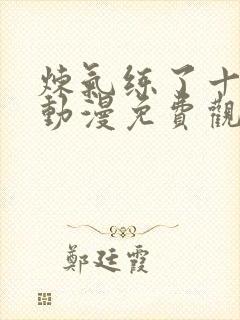 煉氣练了十
動漫免費觀
鄭廷霞